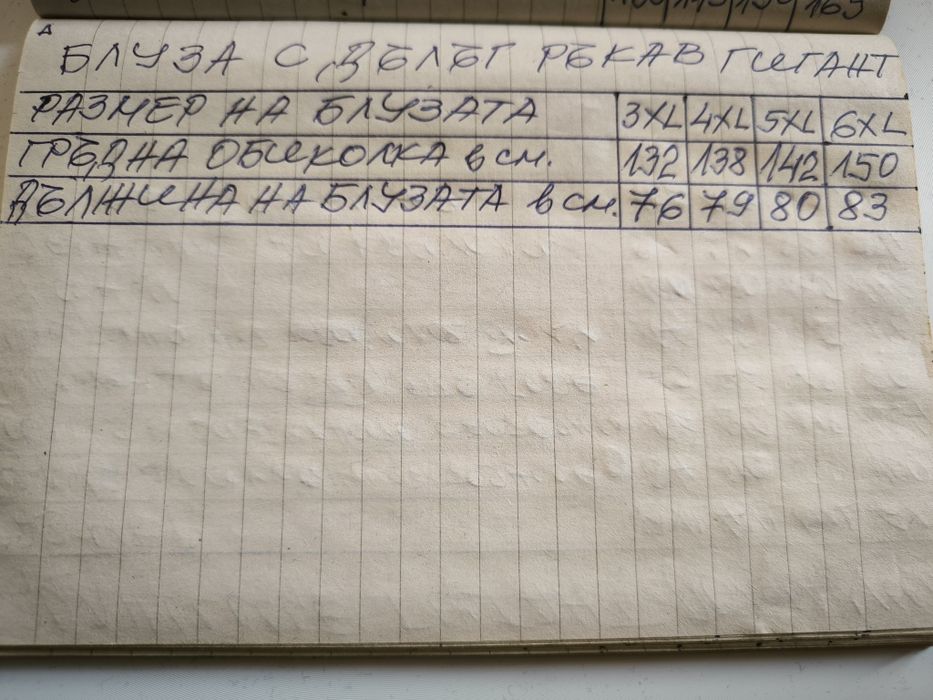 БЛУЗА С ДЪЛЪГ РЪКАВ ГИГАНТ
РАЗМЕР НА БЛУЗАТА 3XL 4XL 5XL 6XL
ГРЪДНА ОБИКОЛКА в см. 132 138 142 150
ДЪЛЖИНА НА БЛУЗАТА в см. 76 79 80 83